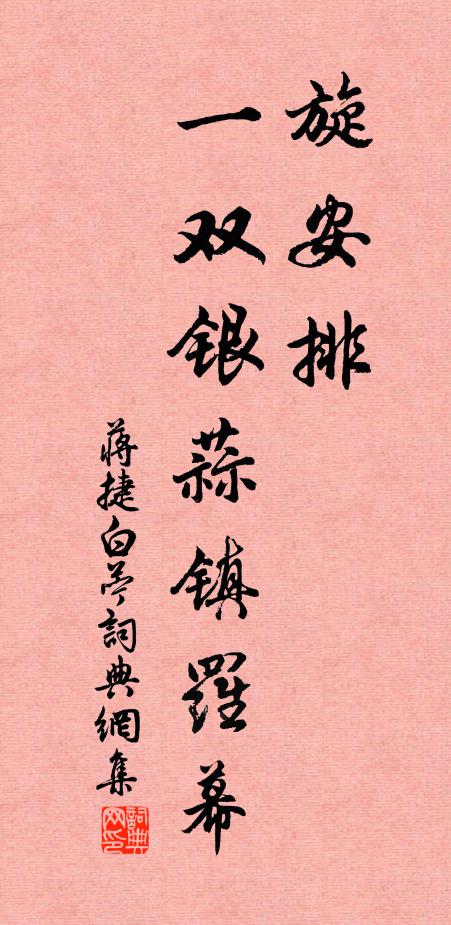 旋安排
一双银蒜镇罗幕
蒋捷白苧詞典網集
詞典网印